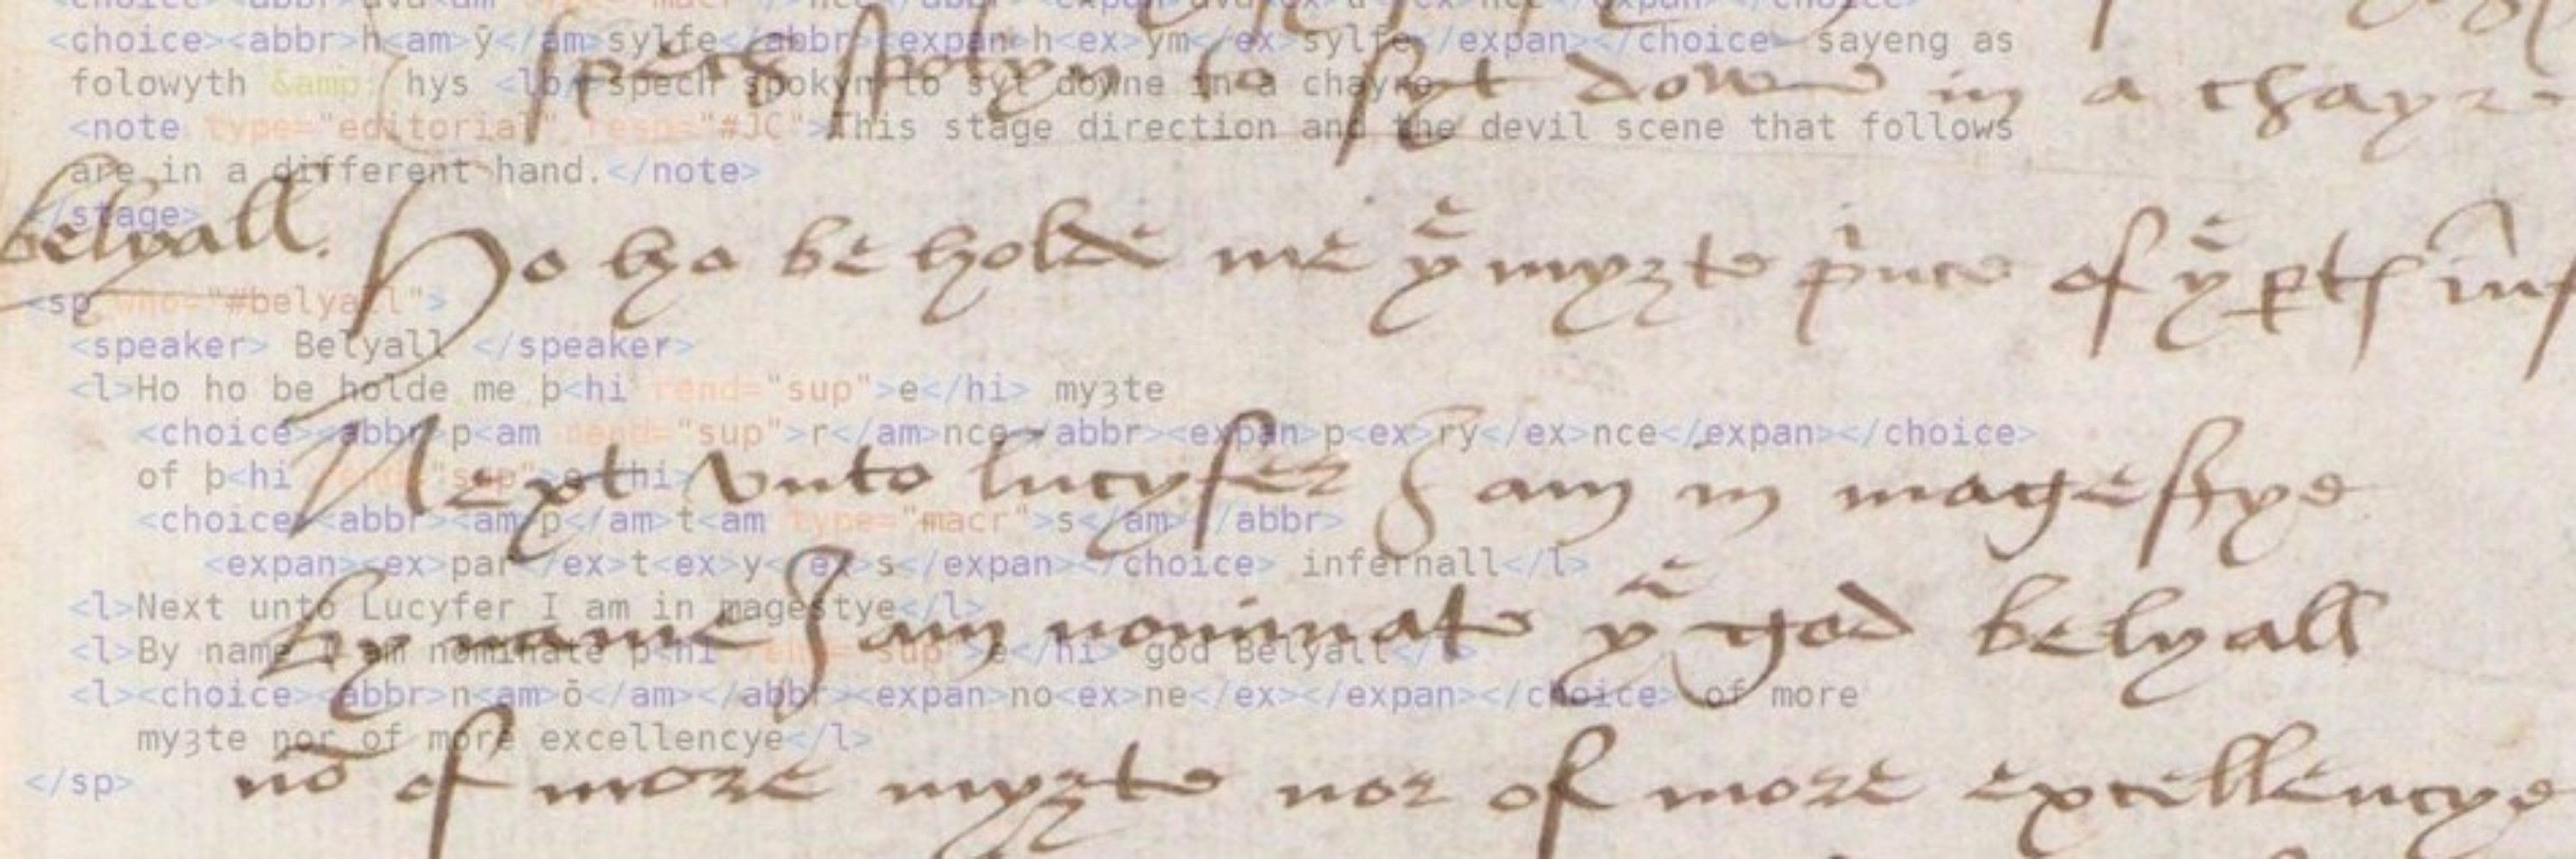 <choice><abbr>h<am>ȳ</am>sylfe</abbr><expan>h<ex>ym</ex>sylfe</expan></choice> sayeng as
folowyth &amp; hys <lb/>spech spokyn to syt downe in a chayre
<note type="editorial" resp="#JC">This stage direction and the devil scene that follows
are in a different hand.</note>
</stage>
<sp who="#belyall">
<speaker> Belyall </speaker>
<l>Ho ho be holde me þ<hi rend="sup">e</hi> myȝte
<choice><abbr>p<am rend="sup">r</am>nce</abbr><expan>p<ex>ry</ex>nce</expan></choice>
of þ<hi rend="sup">e</hi>
<choice><abbr><am>p</am>t<am type="macr">s</am></abbr>
<expan><ex>par</ex>t<ex>y</ex>s</expan></choice> infernall</l>
<l>Next unto Lucyfer I am in magestye</l>
<l>By name I am nominate þ<hi rend="sup">e</hi> god Belyall</l>
<l><choice><abbr>n<am>ō</am></abbr><expan>no<ex>ne</ex></expan></choice> of more
myȝte nor of more excellencye</l>
</sp>
spech spokyn to syt downe in a chayre
belyall. Ho ho be holde me þe myȝte prnce of þe
Next vnto lucyfer I am in magestye
by name I am nominate þe god belyall
nō of more myȝte nor of more excellencye